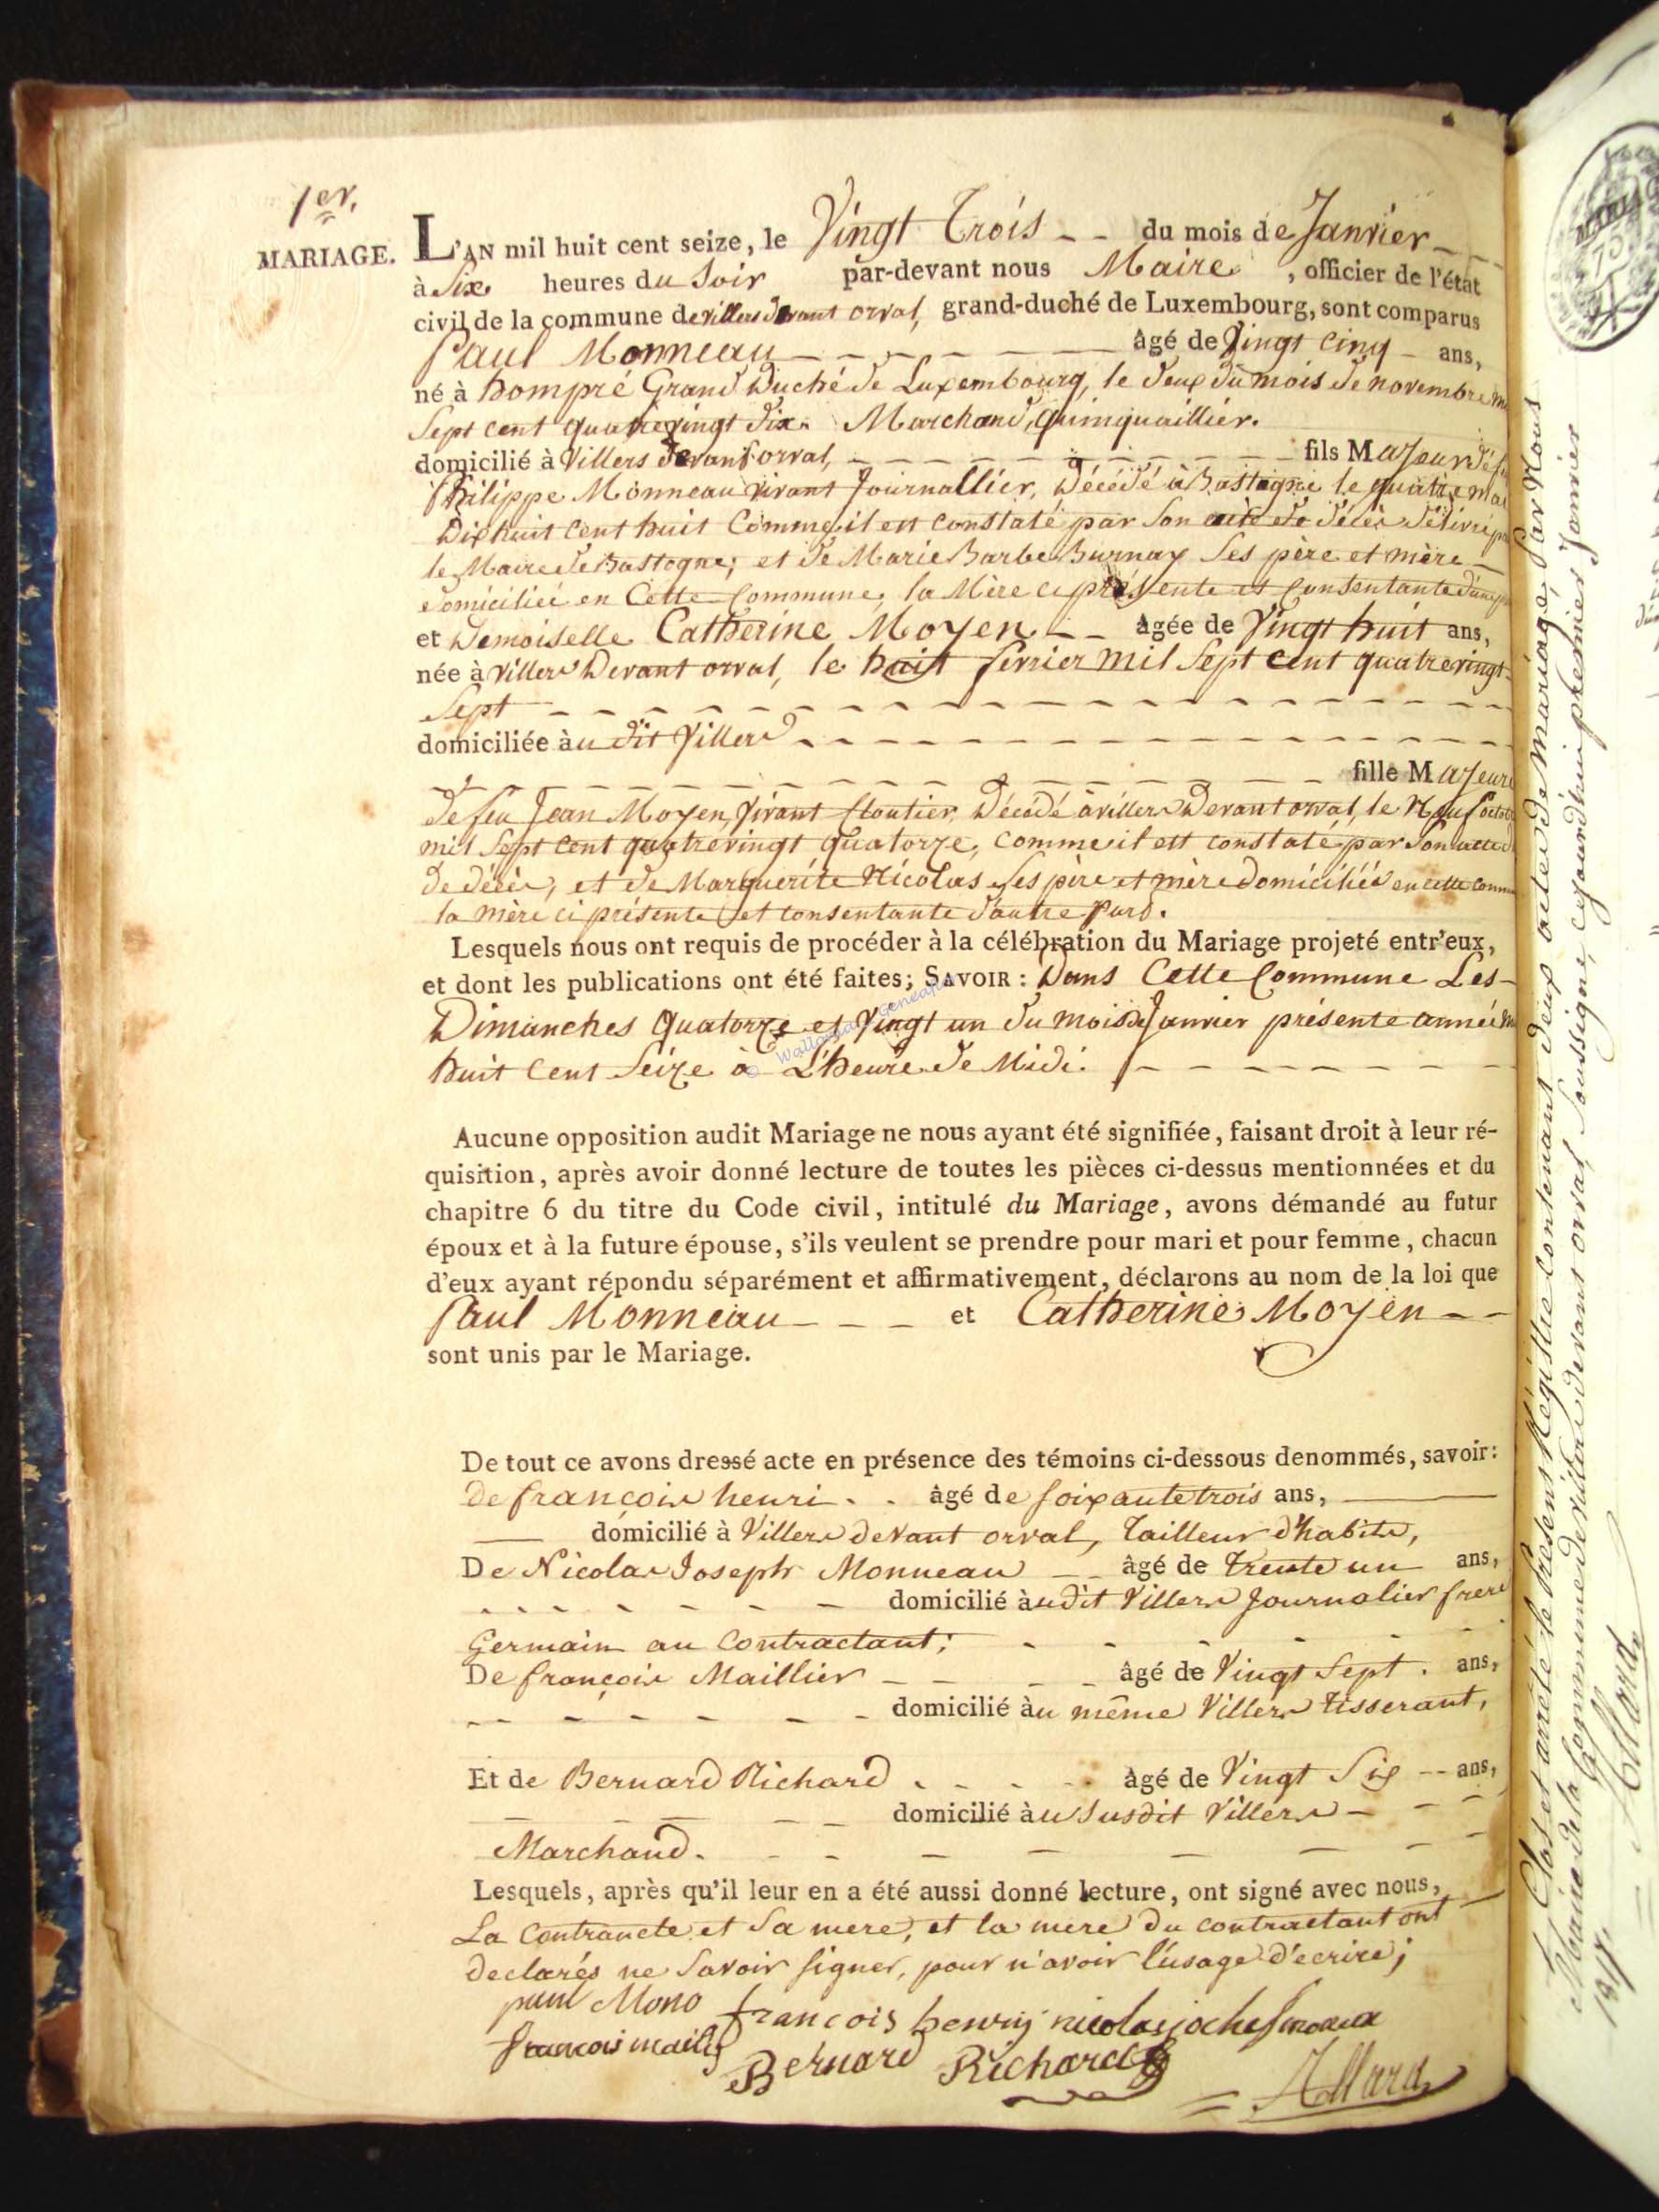 1er.
MARIAGE.
L'AN mil huit cent seize, le Vingt Trois -- du mois de Janvier -
à Six heures du Soir par-devant nous Maire , officier de l'état
civil de la commune de villers devant orval, grand-duché de Luxembourg, sont comparus
Paul Monneau - - - - - âgé de Vingt cinq - ans,
né à hompré Grand Duché de Luxembourg, le deux du mois de novembre
Sept cent quatrevingt dix. Marchand, Quinquaillier.
domicilié à Villers devant orval, - - - - - - - fils Majeur de
Philippe Monneau vivant Journallier, Décédé à Bastogne le quatre mai
Dixhuit cent huit Comme il est constaté par Son acte de décès délivré
le Maire de Bastogne; et de Marie Barbe Burnay Ses père et mère -
domiciliée en Cette Commune, la Mère ci présente et consentante d'une
et Demoiselle Catherine Moyen - - âgée de Vingt huit ans,
née à villers Devant orval, le huit fevrier mil Sept cent quatrevingt-
Sept - - - - - - - - - - - - - - - - -
domiciliée àu dit Villers - - - - - - - - - - - -
- - - - - - - - - - - fille Majeure
de feu Jean Moyen, Vivant Cloutier, Décédé à villers Devant orval, le Neuf
mil Sept cent quatrevingt quatorze, comme il est constaté par Son acte
de décès, et de Marguerite Nicolas Ses père et mère domiciliés en cette
la mère ci présente et consentante d'autre part.
Lesquels nous ont requis de procéder à la célébration du Mariage projeté entr'eux,
et dont les publications ont été faites; SAVOIR : Dans Cette Commune Les-
Dimanches quatorze et Vingt un du mois de Janvier présente année
huit Cent Seize à L'heure de Midi. - - - - - - - -
Aucune opposition audit Mariage ne nous ayant été signifiée, faisant droit à leur ré-
quisition, après avoir donné lecture de toutes les pièces ci-dessus mentionnées et du
chapitre 6 du titre du Code civil, intitulé du Mariage, avons démandé au futur
époux et à la future épouse, s'ils veulent se prendre pour mari et pour femme, chacun
d'eux ayant répondu séparément et affirmativement, déclarons au nom de la loi que
Paul Monneau - - - et Catherine Moyen - -
sont unis par le Mariage.
De tout ce avons dressé acte en présence des témoins ci-dessous denommés, savoir:
De françois henri . . âgé de soixante trois ans,
domicilié à Villers devant orval, Tailleur d'habits,
De Nicolas Joseph Monneau - - âgé de trente un ans,
- - - - - - - domicilié àudit Villers Journalier frere
Germain au Contractant; - - - - - -
De françois Maillier - - - - âgé de Vingt Sept. ans,
- - - - - - - domicilié àu même Villers tisserant,
Et de Bernard Richard . - - - - âgé de Vingt Six -- ans,
- - - - domicilié àu Susdit Villers - - - -
Marchand. - - - - - - - -
Lesquels, après qu'il leur en a été aussi donné lecture, ont signé avec nous,
La Contrancte et Sa mere, et la mere du contractant ont
declarés ne Savoir signer, pour n'avoir l'usage d'écrire;
paul Mono françois henrij nicolas
françois mailly Bernard Richard
Allard
Clos et arrêté le présent Régistre contenant deux actes de mariage, Par Nous
Maire de la Commune de villers devant orval Soussigné, cejourd'hui premier Janvier
1817.
Allard